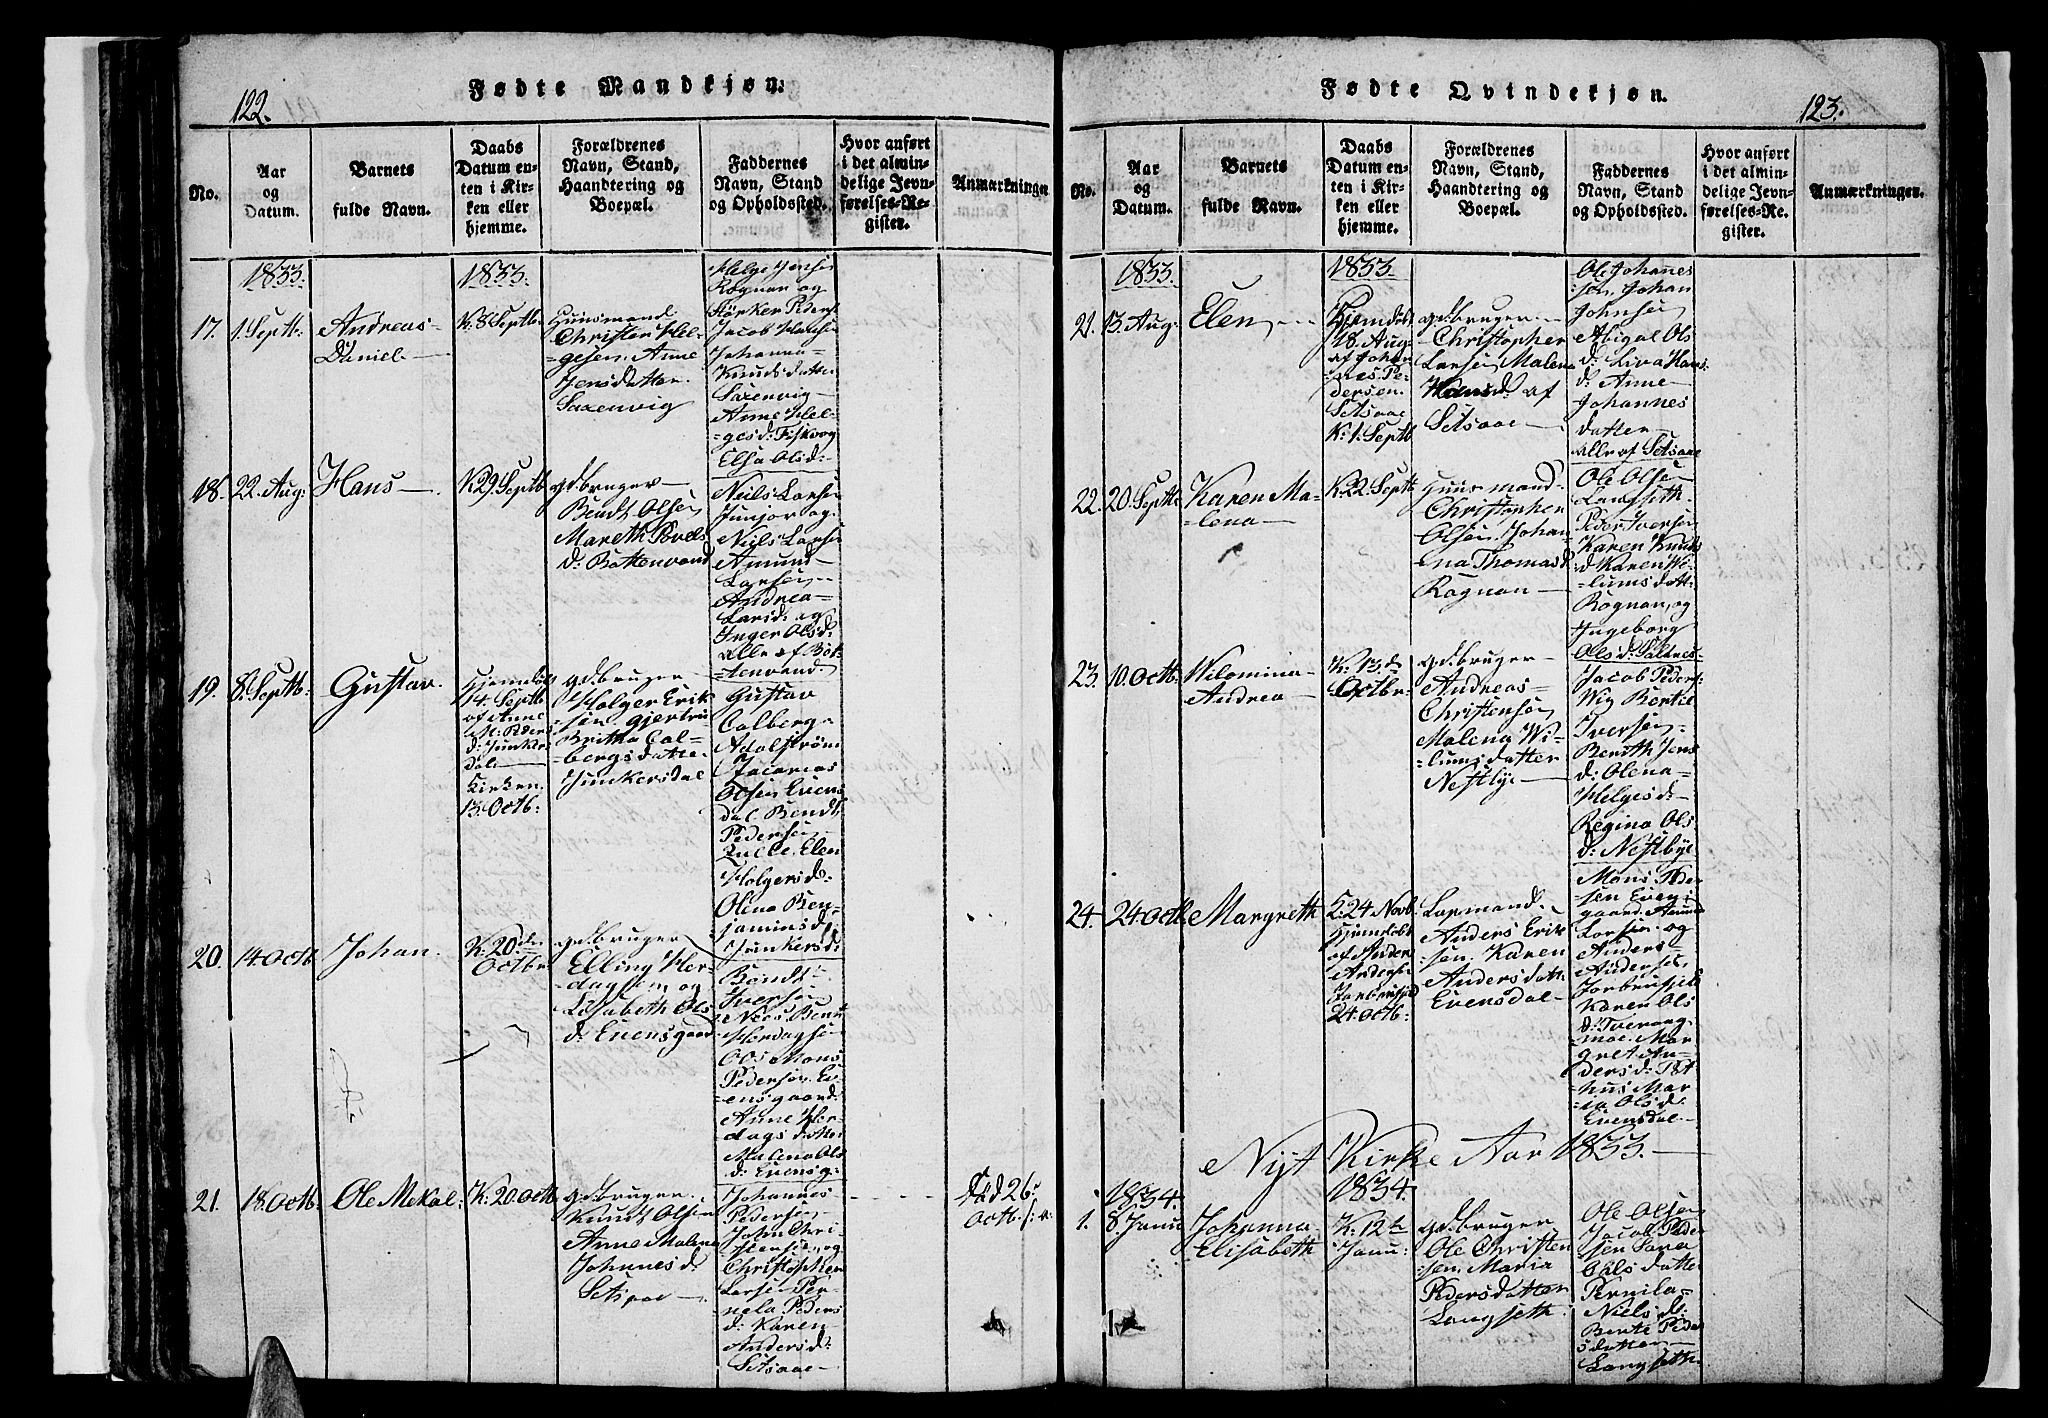 122.
Fødte Mandkjøn.
No.
Aar
og
Datum.
Barnets
fulde Navn.
Daabs
Datum en-
ten i Kir-
ken eller
hjemme.
Forældrenes
Navn, Stand,
Haandtering og
Boepæl.
Faddernes
Navn, Stand
og Opholdssted.
Hvor anført
i det almin-
delige Jevn-
førelses-Re-
gister.
Anmærkninger
1833.
1833.
17.
1. Septb:
Andreas
Daniel
K: 8 Septb:
Huusmand
Christen Hel-
gesen, Anne
Jensdatter
Saxenvig
Helge Jensen
Rognan og
Størker Peders:
Jacob Hansen
Johanna
Knudsdatter
Saxenvig
Anne Hel-
gesd: Fiskvog
Elsa Olsd:
18.
22. Aug:
Hans
K: 29 Septb
gd.bruger
Bendt Olsen
Mareth Povels
d: Bottenvand
Niels Larsen
Junjor og
Niels Larsen
Amund
Larsen
Andrea
Larsd: og
Inger Olsd:
alle af Bot-
tenvand
19.
8. Septb:
Gustav.
Hjemdøbt
14. Septb
af Anne
M: Peders
d: Junkers
dal
Kirken
13. Octb:
gd.bruger
Holger Erik
sen Gjertru
Britha Cal-
bergsdatter
Junkersdal
Gustav
Calberg
Adolstrøm
Zacarias
Olsen Evens
dal Bendt
Pedersen
Elen
Holgersd:
Olena Ben-
jaminsd
Junkersd:
20.
14 Octb.
Johan.
K: 20de
Octbr
gd.bruger
Elling Her-
dagsen og
Lisabeth Ols
d: Evensgaard
Bendt
Iversen
Herdagsen
Mons
Pedersen Ev-
ensgaard
Anne Her-
dagsdatter
Malena Ols
d: Evensg:
21.
18. Octb.
Ole Mekal
K: 20. Octb
gd.bruger
Knudt Olsen
Anne Malena
Johanesd:
Setsaae
Johannes
Pedersen
John Chri-
stensen, og
Christopher
Larsen Per-
nela Peders
d: Karen
Andersd:
Setsaae
Død 26.
Octb.
Fødte Qvindekjøn.
123.
No.
Aar
og
Datum.
Barnets
fulde Navn.
Daabs
Datum en-
ten i Kir-
ken eller
hjemme.
Forældrenes
Navn, Stand,
Haandtering og
Boepæl.
Faddernes
Navn, Stand
og Opholdssted.
Hvor anført
i det almin-
delige Jevn-
førelses-Re.
gister.
Anmærkninger.
1833.
1833.
21.
13. Aug:
Elen
Hjemdøbt
18. Aug:
af Johan
nes Pe-
dersen
Setsaae
K: 1. Septb
gd.bruger
Christopher
Larsen Malena
Hansd: af
Setsaae
Ole Johanes
sen, Johan
Johnsen
Abigal Ols
d: Liva Hans
d: Anne
Johannes
datter
alle af Setsaae
22.
20. Septb:
Karen Ma-
lena
K: 22. Septb
Huusmand
Christopher
Olsen, Johan
na Thomasd
Rognan
Ole Olsen
Langseth
Peder Iversen
Karen Knuds
d: Karen Wi-
lumsdatt:
Rognan, og
Ingeborg
Olsd: Saltnes
23.
10. Octb:
Wilomina
Andrea
K: 13de
Octbr
gd.bruger
Andreas
Christensen
Malena Wi-
lumsdatter
Nestbye
Jacob Peders:
Wig Bertil
Iversen
Benth Jens
d: Olena
Helgesd:
Regina Ols
d: Nestbye
24.
24 Octb
Margreth
24 Novb
Hjemdøbt
af Anders
Andersen
24. Octb:
Lapmand
Anders Erik
sen, Karen
Andersdatt:
Evensdal
Mons Peder
sen Evens
gaard. Amund
Larsen og
Anders
Andersen
Karen Ols
d: Tveraag
moe. Mar
gret An-
dersd: Pot
hus Mar
Olsd:
Evensdal
Nyt Kirke Aar 1833.
1834.
1834.
1.
8. Janu
Johanna
Elisabeth
K: 12te
Janu:
gd.bruger
Ole Christen
sen, Maria
Pedersdatter
Langseth
Ole Olsen
Jacob Peder
sen Sara
Olsdatter
Pernila
Nielsd:
Berte Peder
sdatter
Langseth